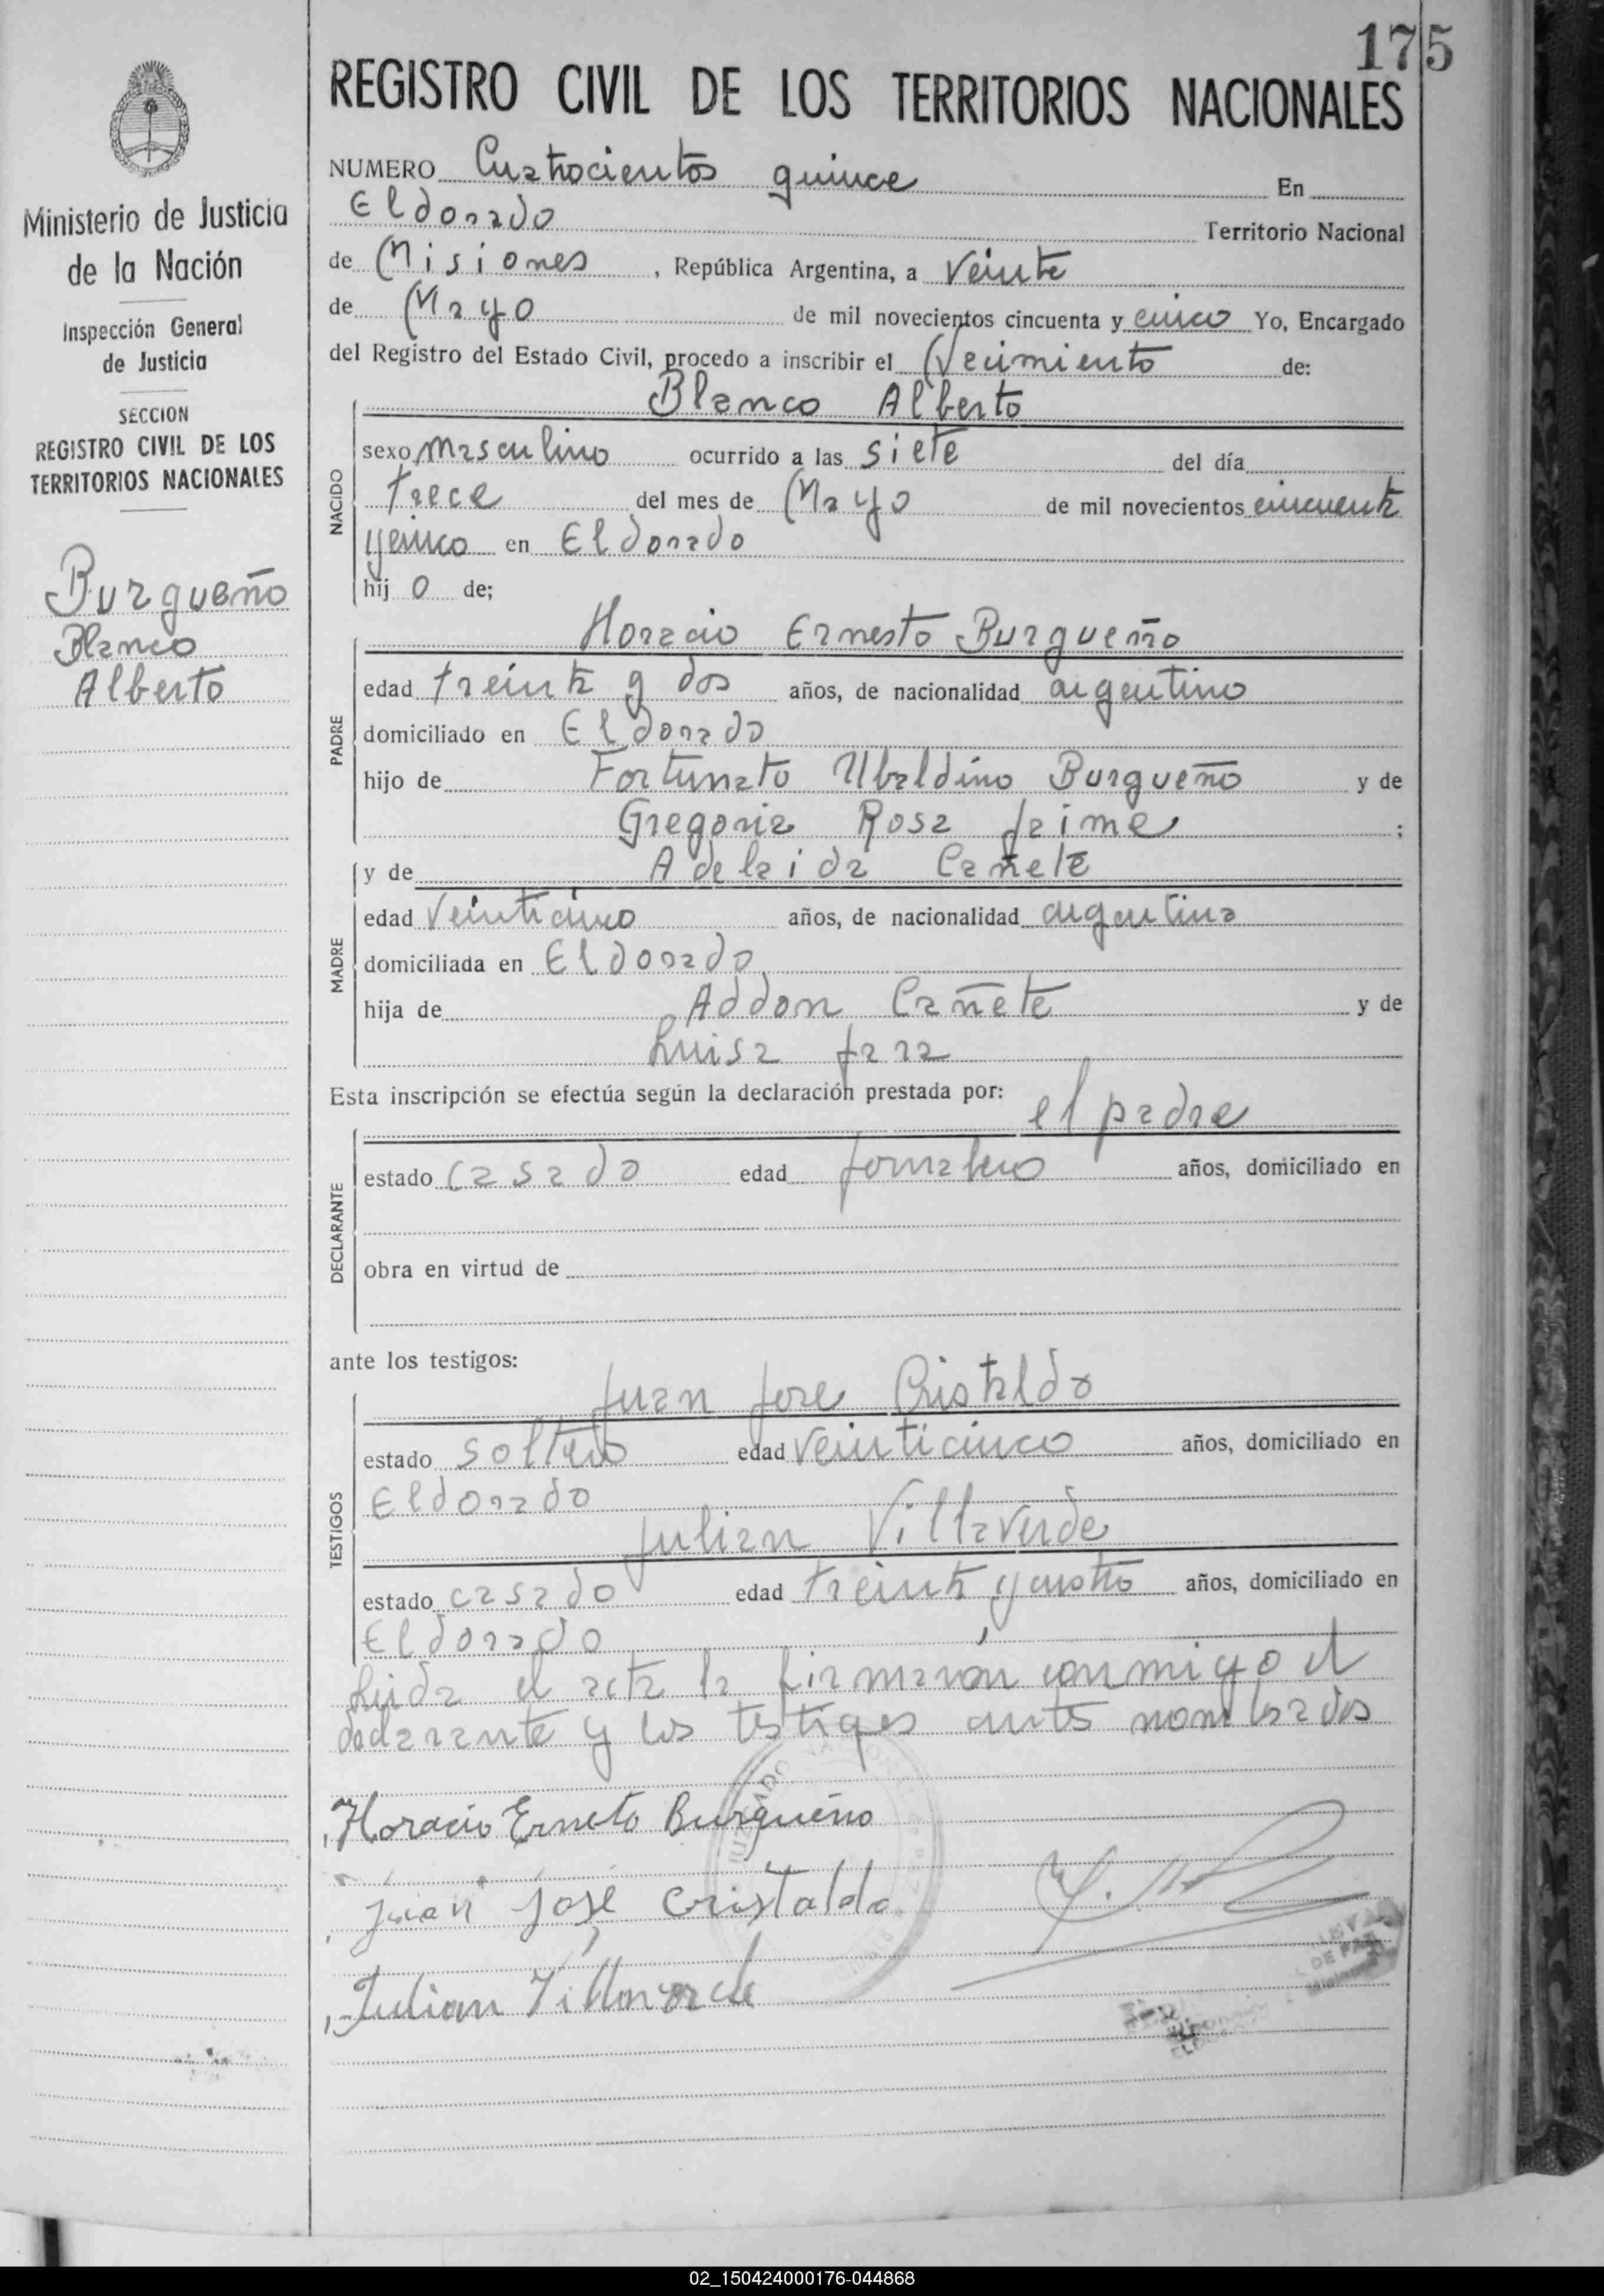 175
REGISTRO CIVIL DE LOS TERRITORIOS NACIONALES
Ministerio de Justicia
de la Nación
Inspección General
de Justicia
SECCION
REGISTRO CIVIL DE LOS
TERRITORIOS NACIONALES
Burgueño
Blanco
Alberto
NUMERO Cuatrocientos quince En
Eldorado Territorio Nacional
de Misiones, República Argentina, a Veinte
de Mayo de mil novecientos cincuenta y cinco Yo, Encargado
del Registro del Estado Civil, procedo a inscribir el Necimiento de:
Blanco Alberto
NACIDO
sexo masculino ocurrido a las siete del día
trece del mes de Mayo de mil novecientos cincuenta
y cinco en Eldorado
hij o de;
Horacio Ernesto Burgueño
PADRE
edad treinta y dos años, de nacionalidad argentino
domiciliado en Eldorado
hijo de Fortunato Ubaldino Burgueño y de
Gregoria Rosa Jaime ;
y de Adelaida Cañete
MADRE
edad Veinticinco años, de nacionalidad argentina
domiciliada en Eldorado
hija de Addon Cañete y de
Luisa Jara
Esta inscripción se efectúa según la declaración prestada por: el padre
DECLARANTE
estado casado edad jornalero años, domiciliado en
obra en virtud de
ante los testigos:
Juan Jose Cristaldo
TESTIGOS
estado soltero edad Veinticinco años, domiciliado en
Eldorado
Julian Villaverde
estado casado edad treinta y cuatro años, domiciliado en
Eldorado
Leida el acta la firmaron conmigo el
declarante y los testigos antes nombrados
Horacio Erneto Burgueño
Juan José Cristaldo
Julian Villaverde
JUZGADO
DE PAZ
02_150424000176-044868